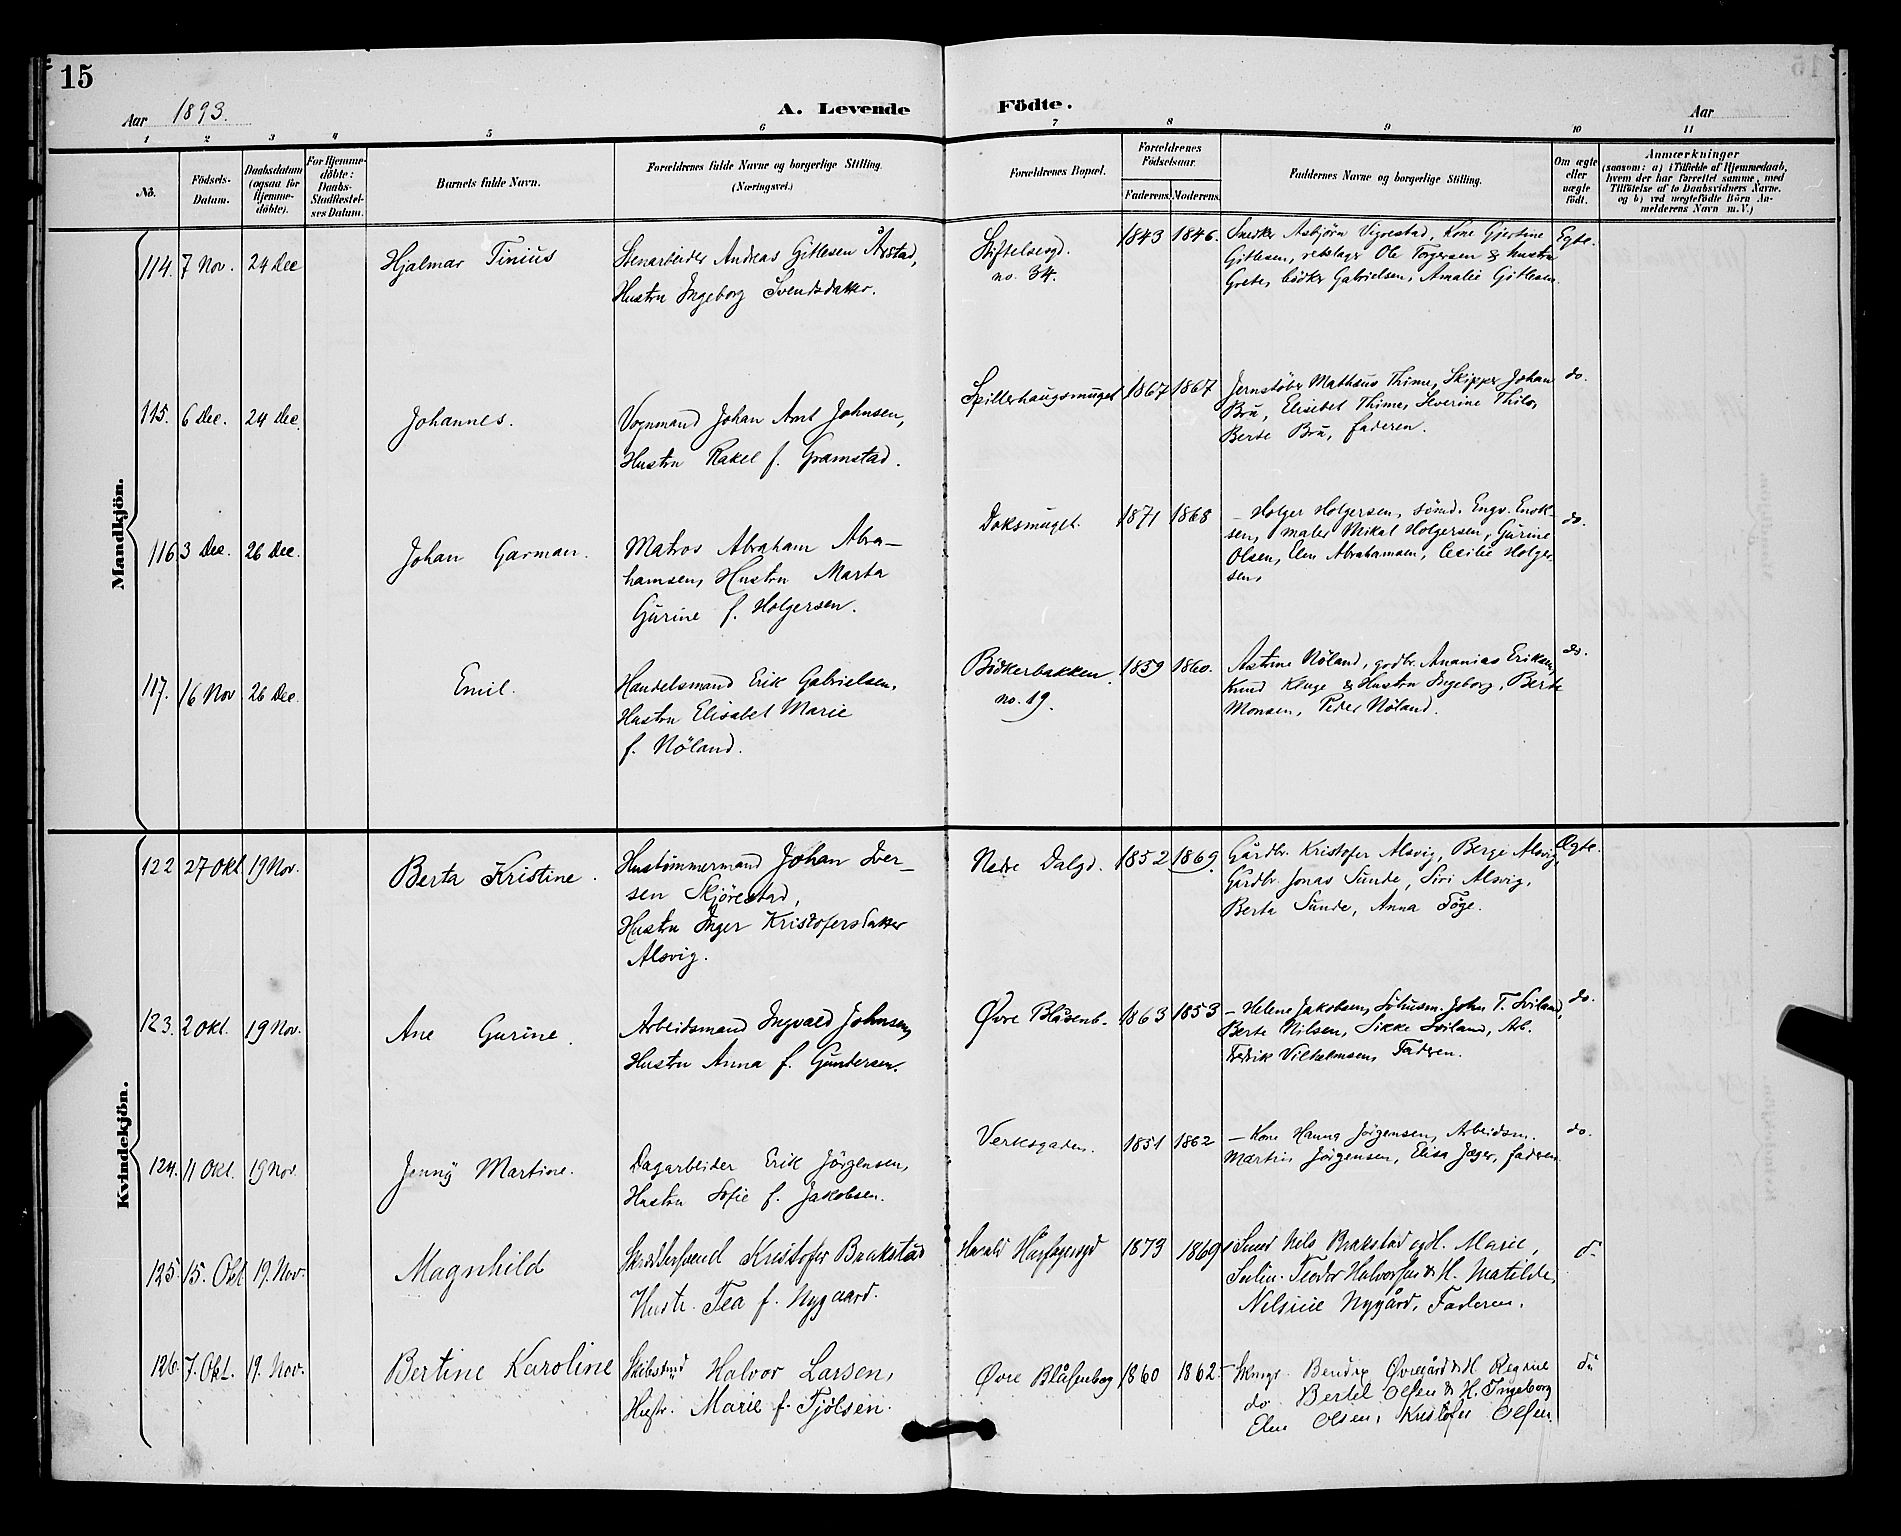 15
Aar 1893.
A. Levende Födte.
Aar
1 2 3 4 5 6 7 8 9 10 11
No.
Födsels-Datum.
Daabsdatum (ogsaa for Hjemme-döbte).
For Hjemme-döbte: Daabs-Stadfæstel-ses Datum.
Barnets fulde Navn.
Forældrenes fulde Navne og borgerlige Stilling. (Næringsvei.)
Forældrenes Bopæl.
Forældrenes Födselsaar.
Faderens. Moderens.
Faddernes Navne og borgerlige Stilling.
Om ægte eller uægte födt.
Anmærkninger
(saasom: a) i Tilfælde af Hjemmedaab, hvem der har forrettet samme, med Tilföielse af to Daabsvidners Navne. og b) ved uægtefödte Börn An-melderens Navn m. V.)
Mandkjön.
114. 7 Nov. 24 Dec
Hjalmar Tinius
Stenarbeider Andreas Gitlesen Årstad,
Hustru Ingeborg Svendsdatter.
Stiftelsesgd.
no. 34.
1843 1846.
Snedker Asbjörn Vigrestad, Kone Gjertine
Gitlesen, Ole Torgersen & hustru
Grete, bödker Gabrielsen, Amalie Gitlesen.
Egte.
115. 6 Dec. 24 Dec.
Johannes.
Vognmand Johan Arnt Johnsen,
Hustru Rakel f. Gramstad.
Spillerhaugsmuget
1867 1867
Jernstöber Mathæus Thime, Skipper Johan
Bru, Elisebet Thime, Severine Thilo,
Berte Bru, faderen.
do.
116 3 Dec. 26 Dec.
Johan Garman.
Matros Abraham Abra-
hamsen, Hustru Marta
Gurine f. Holgersen.
Doksmuget.
1871 1868
- Holger Holgersen, sömd. Engv. Enok-
sen, maler Mikal Holgersen, Gurine
Olsen, Elen Abrahamsen, Cecilie Holger-
sen,
do.
117. 16 Nov 26 Dec.
Emil.
Handelsmand Erik Gabrielsen,
Hustru Elisabet Marie
f. Nöland.
Bödkerbakken
no. 19.
1859 1860.
Nöland, gdbr. Ananias Eriksen,
Knud Kluge & Hustru Ingeborg, Berte
Monsen, Peder Nöland.
do.
Kvindekjön.
122 27 Okt. 19 Nov.
Berta Kristine.
Hustömmermand Johan Iver-
sen Skjörestad,
Hustru Inger Kristofersdatter
Alsvig.
Nedre Dalgd.
1852 1869.
Gårdbr. Kristofer Alsvig, Berge Alsvig,
Gårdbr. Jonas Sunde, Siri Alsvig,
Berta Sunde, Anna Töge.
Ægte.
123. 2 Okt. 19 Nov.
Ane Gurine.
Arbeidsmand Ingvald Johnsen,
Hustru Anna f. Gundersen.
Øvre Blåsenb.
1863 1853
- Helene Jakobsen, John T. Sviland,
Berte Nilsen, Sikke Sviland, Arb.
Fredrik Vilhelmsen, Faderen.
do.
124. 11 Okt. 19 Nov.
Jenny Martine.
Dagarbeider Erik Jörgensen,
Hustru Sofie f. Jakobsen.
Verksgaden.
1851 1862
- Kone Hanna Jörgensen, Arbeidsm.
Martin Jörgensen, Elisa Jæger, faderen.
do.
125. 15. Okt 19. Nov.
Magnhild
Skrædersvend Kristofer Brakstad
Hustr. Tea f. Nygaard.
Harald Hårfagersgd
1873 1869
Smed Nels Brakstad og H. Marie,
Teodor Halvorsen & H. Matilde,
Nilsine Nygård, Faderen.
do
126. 7. Okt. 19. Nov.
Bertine Karoline
Halvor Larsen,
Hustr. Marie f. Tjölsen.
Øvre Blåsenborg
1860 1862
Bendix Øvregård & H. Regine
do Bertel Olsen & H. Ingeborg
Elen Olsen, Kristofer Olsen
do